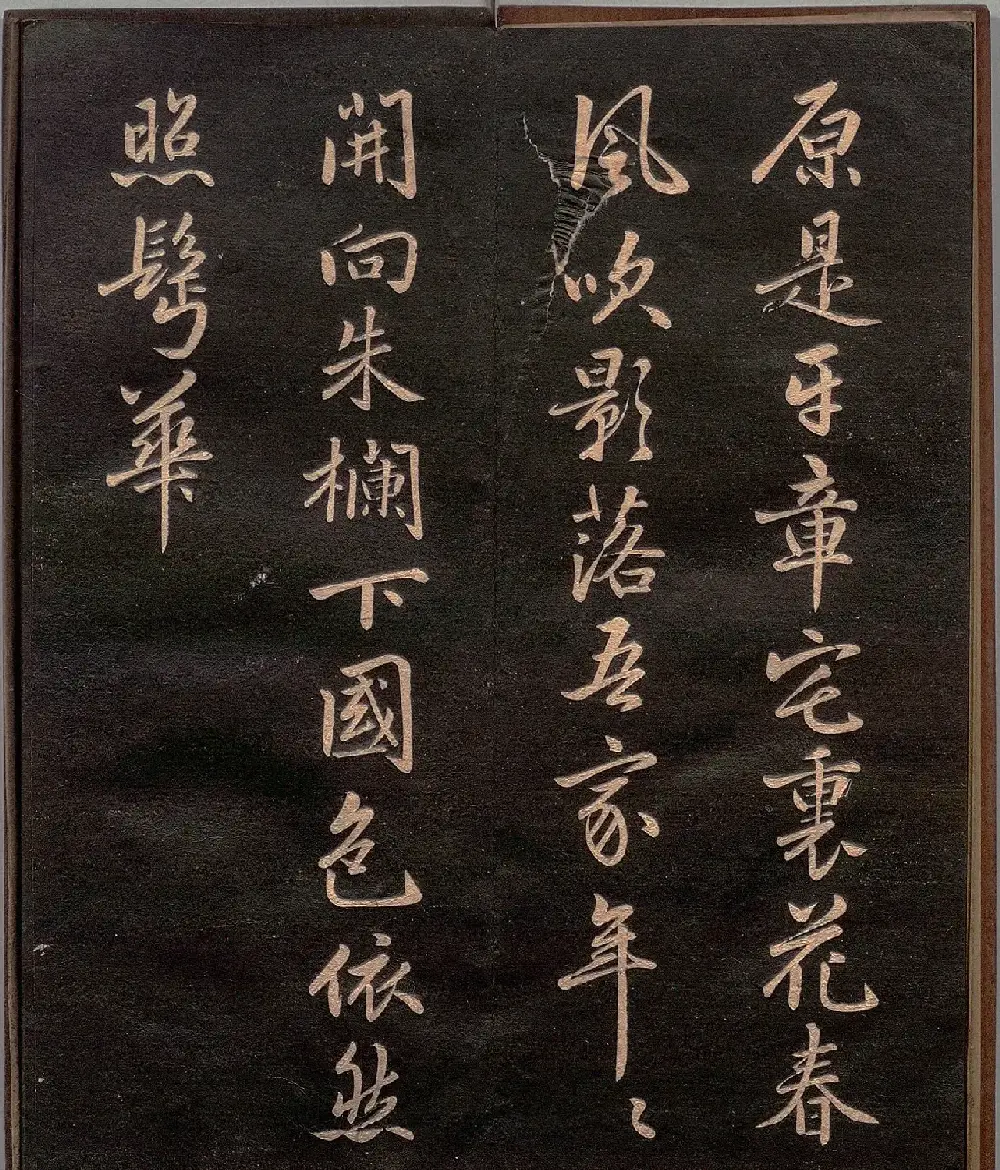 原是牙章宅裏花春
風吹影落吾家年〻
開向朱欄下國色依然
照鬢華